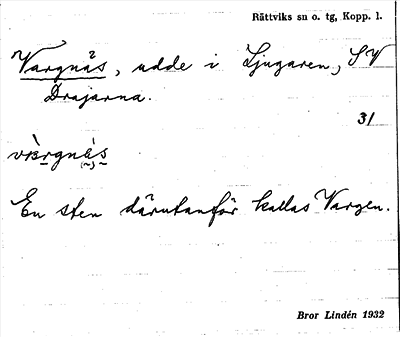 Rättviks sn o. tg, Kopp. l.
Vargnäs, udde i Ljugaren, SV
Drajarna.
31
En sten därutanför kallas Vargen.
Bror Lindén 1932